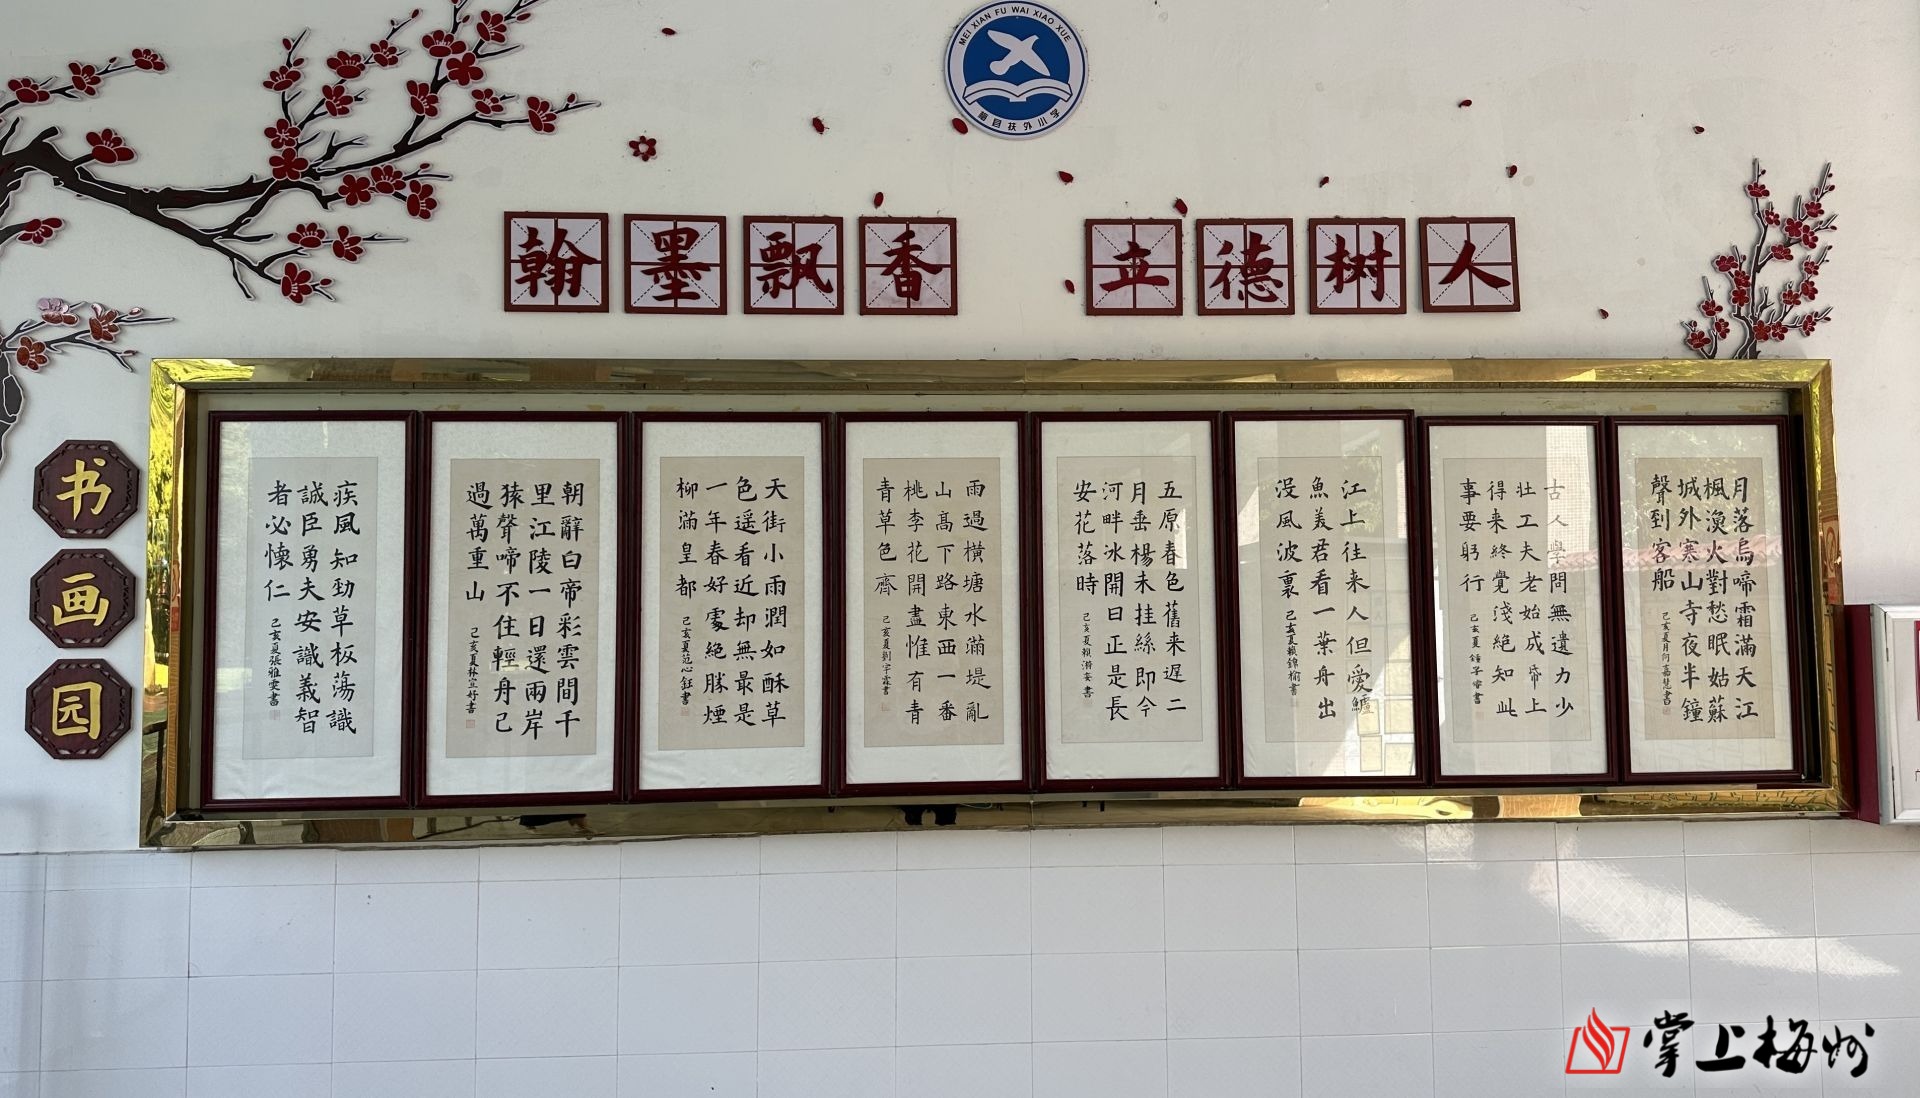 MEI XIAN FU WAI XIAO XUE
梅县扶外小学
翰墨飘香 立德树人
书画园
月落烏啼霜滿天江
楓漁火對愁眠姑蘇
城外寒山寺夜半鐘
聲到客船
己亥夏月向嘉慧書
古人學問無遺力少
壮工夫老始成帋上
得来終覺淺絕知此
事要躬行
己亥夏鍾子睿書
江上往来人但愛鱸
魚美君看一葉舟出
没風波裏
己亥夏賴錦榆書
五原春色舊来遲二
月垂楊未挂絲即今
河畔冰開日正是長
安花落時
己亥夏賴 安書
雨過橫塘水滿堤亂
山高下路東西一番
桃李花開盡惟有青
青草色齊
己亥夏劉宇霖書
天街小雨潤如酥草
色遥看近却無最是
一年春好處絕勝煙
柳滿皇都
己亥夏范心鈺書
朝辭白帝彩雲間千
里江陵一日還兩岸
猿聲啼不住輕舟已
過萬重山
己亥夏林宣妤書
疾風知勁草板蕩識
誠臣勇夫安識義智
者必懷仁
己亥夏張雅雯書
掌上梅州